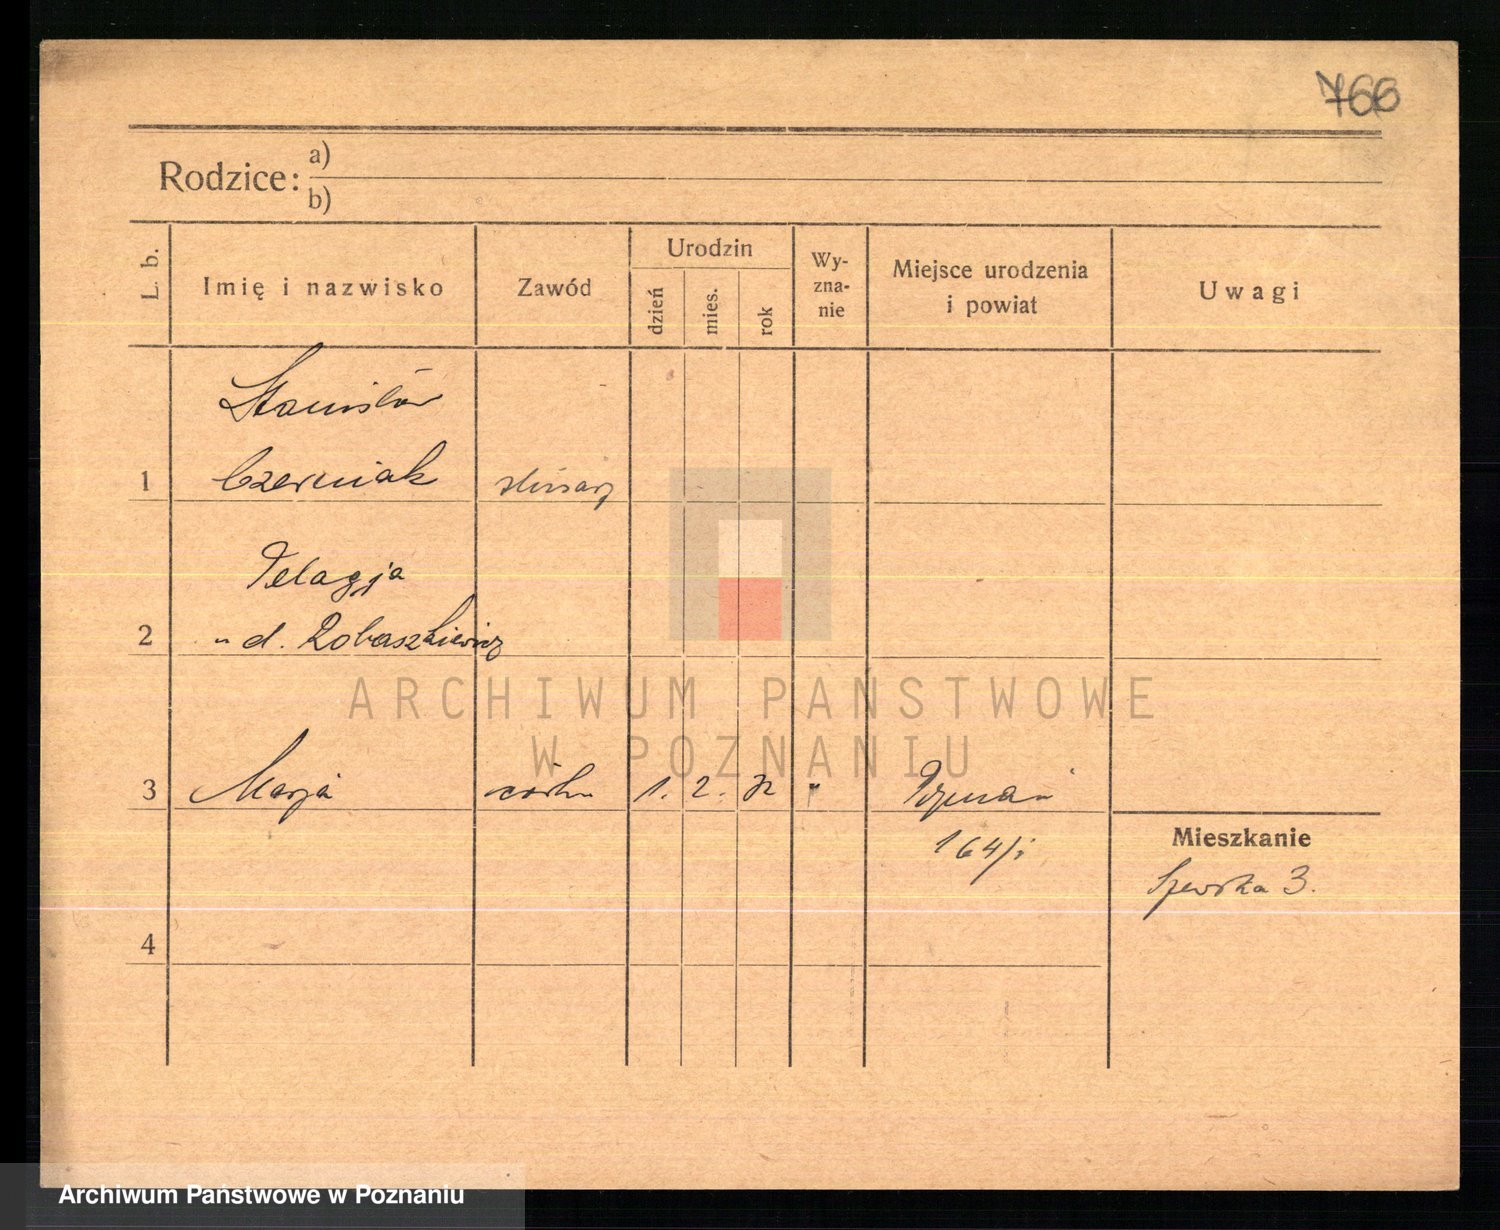 766
Rodzice:
a)
b)
L. b.
Imię i nazwisko
Zawód
Urodzin
dzień
mies.
rok
Wy-
zna-
nie
Miejsce urodzenia
i powiat
Uwagi
Stanisław
1 Czerniak ślusarz
Pelagja
2 d. Robaszkiewicz
3 Marja córka 1. 2. 32 " Poznań
164/i
Mieszkanie
Szewska 3.
4
ARCHIWUM PAŃSTWOWE
W POZNANIU
Archiwum Państwowe w Poznaniu